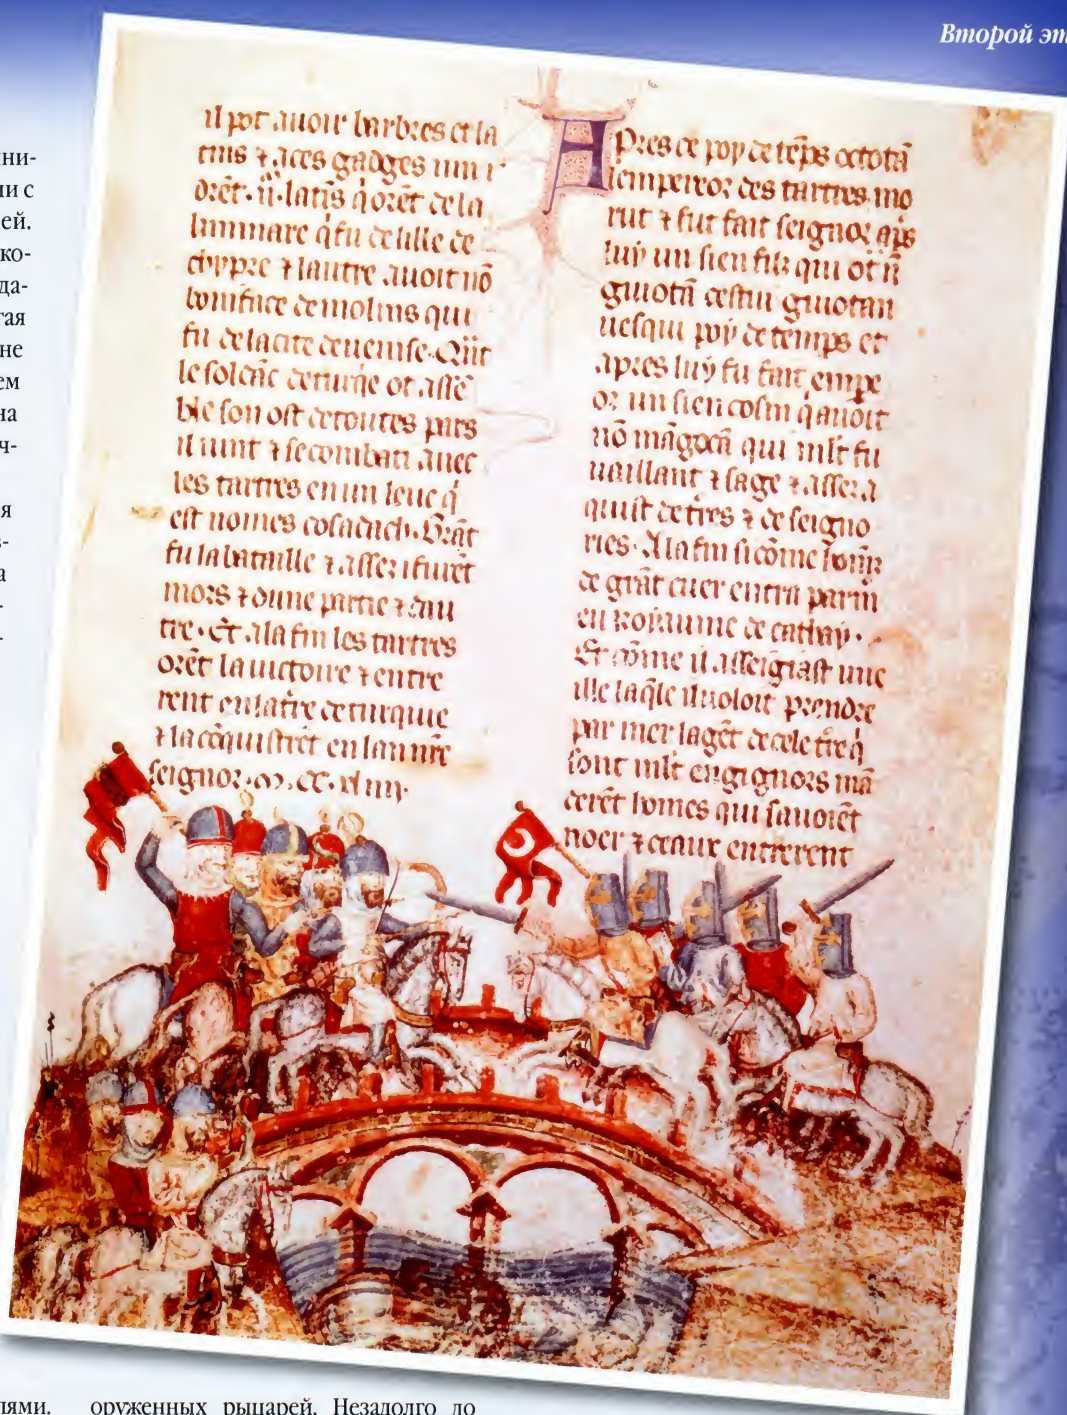 Второй эт
ни-
ии с
ей.
ко-
да-
гая
не
ем
на
ч-
я
в-
а
-
-
il pot auoir barbres et la
tins ⁊ aces gadges um r
orēt· ii· latīs q̇ orēt de la
liminate q̇ fu de lille de
chyppre ⁊ lautre auoit nō
boniface de molins qui
fu de la cite de uenise· Qūt
le soldāc de turq̇e ot assē
ble son ost de toutes pars
il uint ⁊ se combati auec
les tartres en un leuc q̇
est nomes cosadach· Grāt
fu la bataille ⁊ assez ifurēt
mors ⁊ dune partie ⁊ dau
tre· Et ala fin les tartres
orēt la uictoire ⁊ entre
rent en la tr̄e de turquie
⁊ la cōquistrēt en lan nr̄e
seignor· m· cc· xl iiij·
Apres ce poy de tēps octotā
lempereor des tartres mo
rut ⁊ fut fait seignor ap̄s
luy un sien filz qui ot n̄
guiotā cestui guiotan
uesqui poy de temps et
apres luy fu fait empe
or un sien cosin q̇ auoit
nō māgocā qui mlt fu
uaillant ⁊ sage ⁊ assez a
quist de tr̄es ⁊ de seigno
ries· A la fin si cōme hom̄e
de grāt cuer entra parmi
eu royaume de cathay·
Et cōme il asseigiast une
ille laq̄le il uoloit prendre
par mer la gēt de cele tr̄e q̇
sont mlt engignors mā
derēt homes qui sauoiēt
noer ⁊ ceaux entrerent
лями.
оруженных рыцарей. Незадолго до